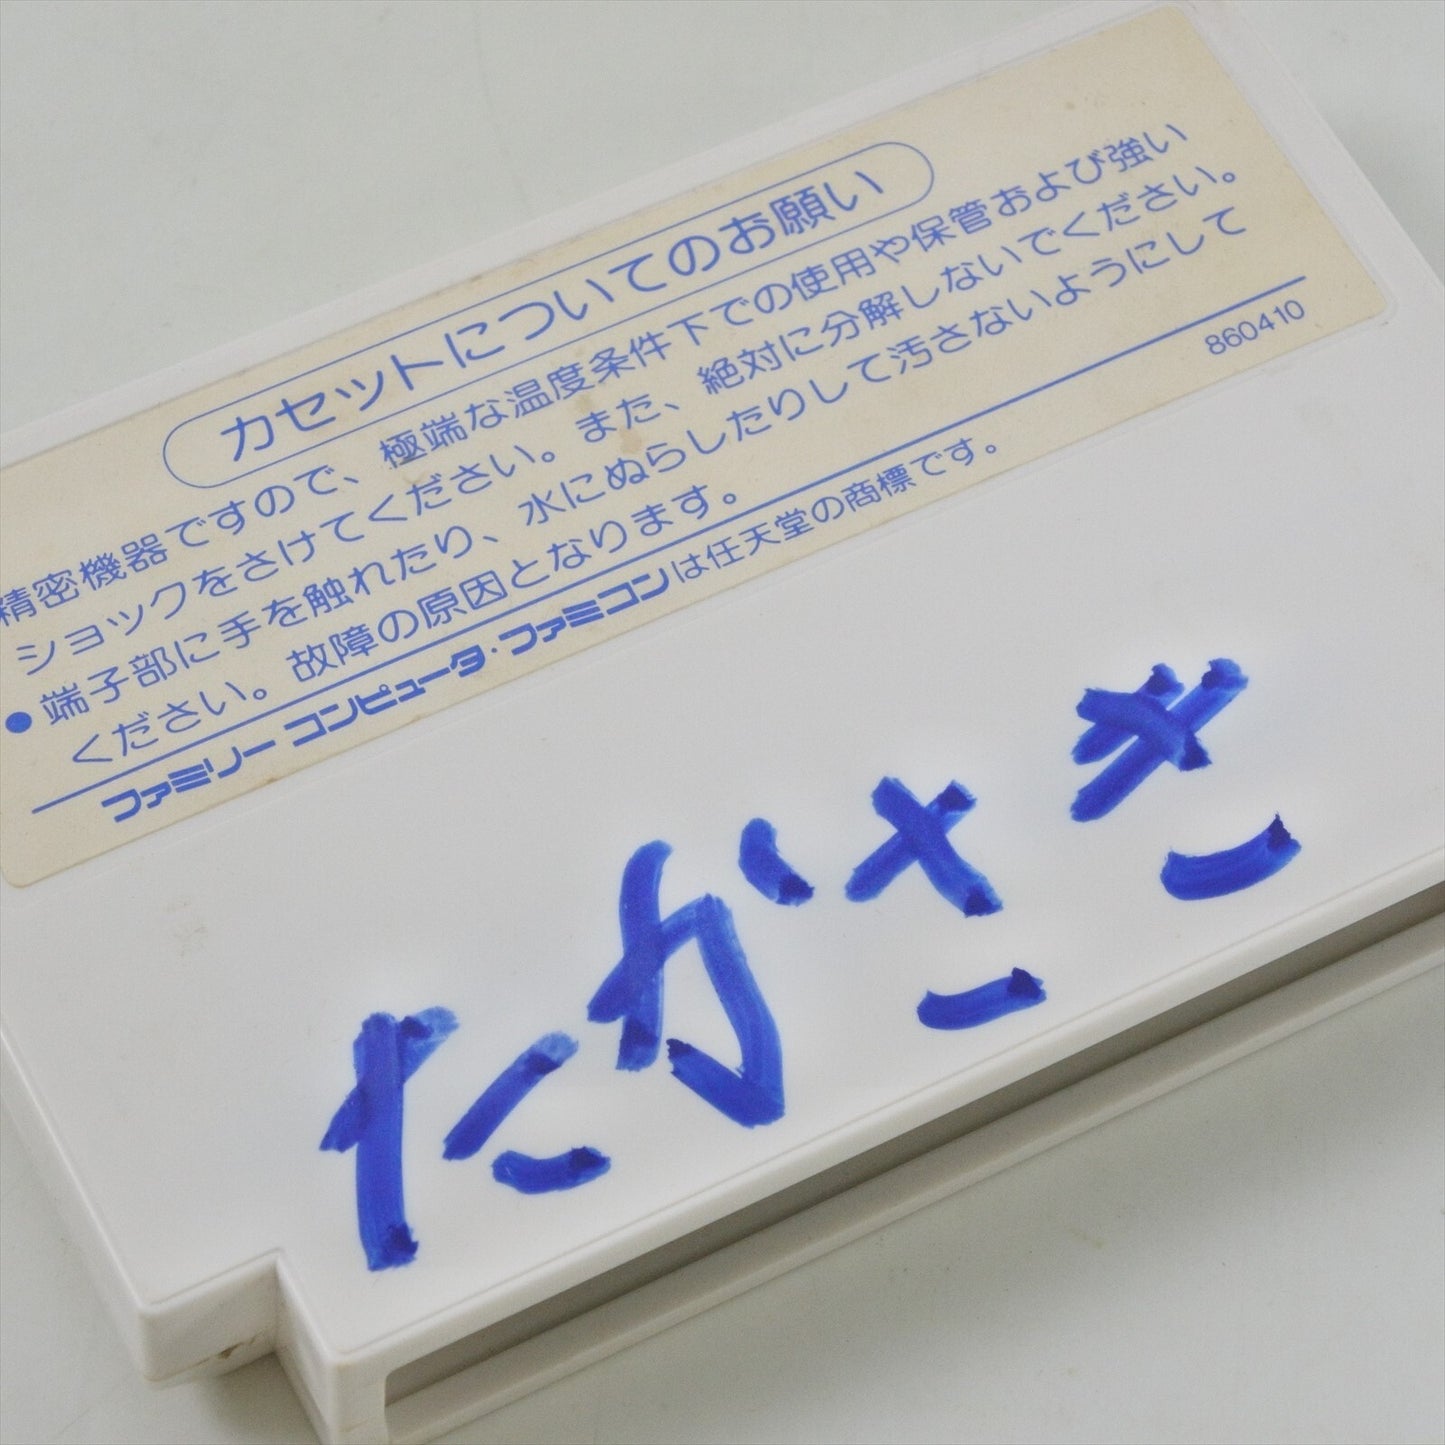 カセットについてのお願い
精密機器ですので、極端な温度条件下での使用や保管および強い
ショックをさけてください。また、絶対に分解しないでください。
●端子部に手を触れたり、水にぬらしたりして汚さないようにして
ください。故障の原因となります。
860410
ファミリーコンピュータ・ファミコンは任天堂の商標です。
たかさき